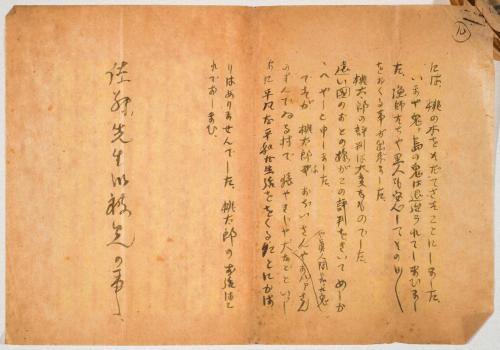 には、桃の木をそだてさすことにしました。
いまや鬼ヶ島の鬼は退治られてしまひまし
た、漁師たちや軍人も安心してその日
をおくる事が出来ました。
桃太郎の評判は大変なものでした。
遠い国のおとの様がこの評判をきいてめしか
へやーと申しました。
ですが、桃太郎は おぢいさんやおばあさん
のすんでゐる村で 猿やきじや犬などといっしょ
に平凡な平和な生活をおくることにかは
りはありませんでした、桃太郎のお話はこ
れでおしまひ。
佐藤先生
⑩